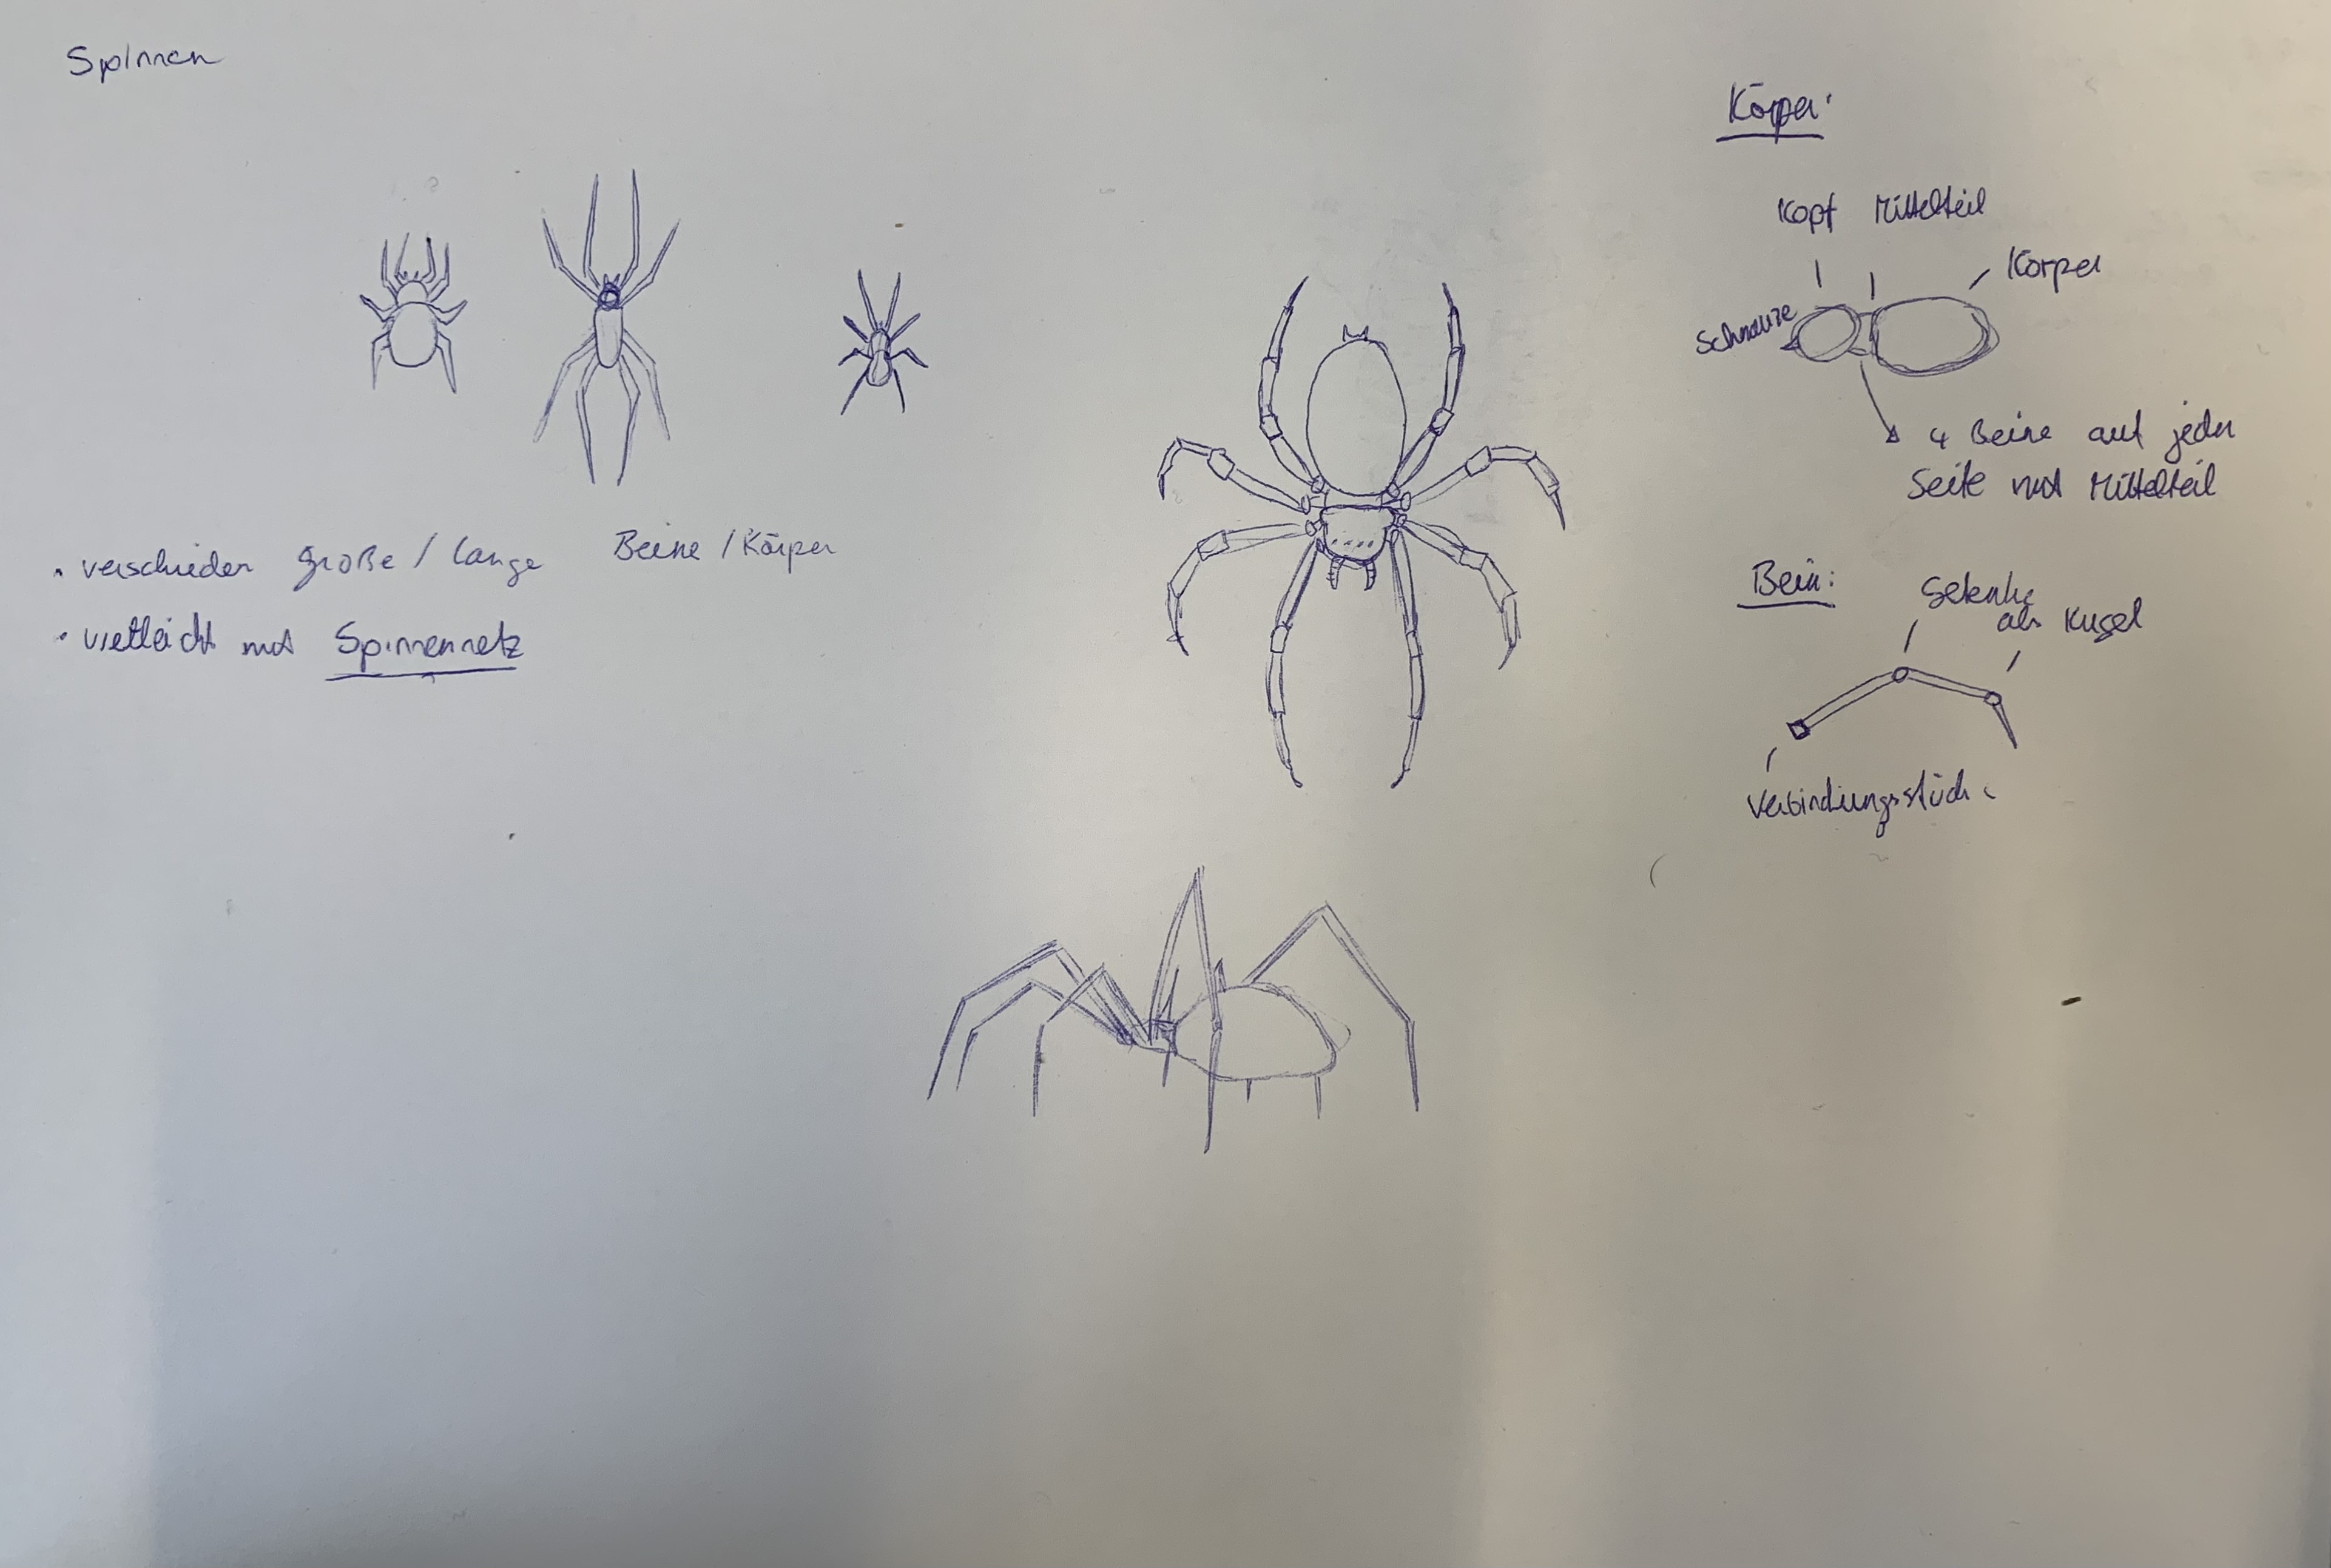 Spinnen
• verschieden große / lange Beine / Körper
• vielleicht mit Spinnennetz
Körper:
Kopf Mittelteil
Körper
Schnauze
4 Beine auf jeder
Seite mit Mittelteil
Bein:
Gelenke
als Kugel
Verbindungsstück